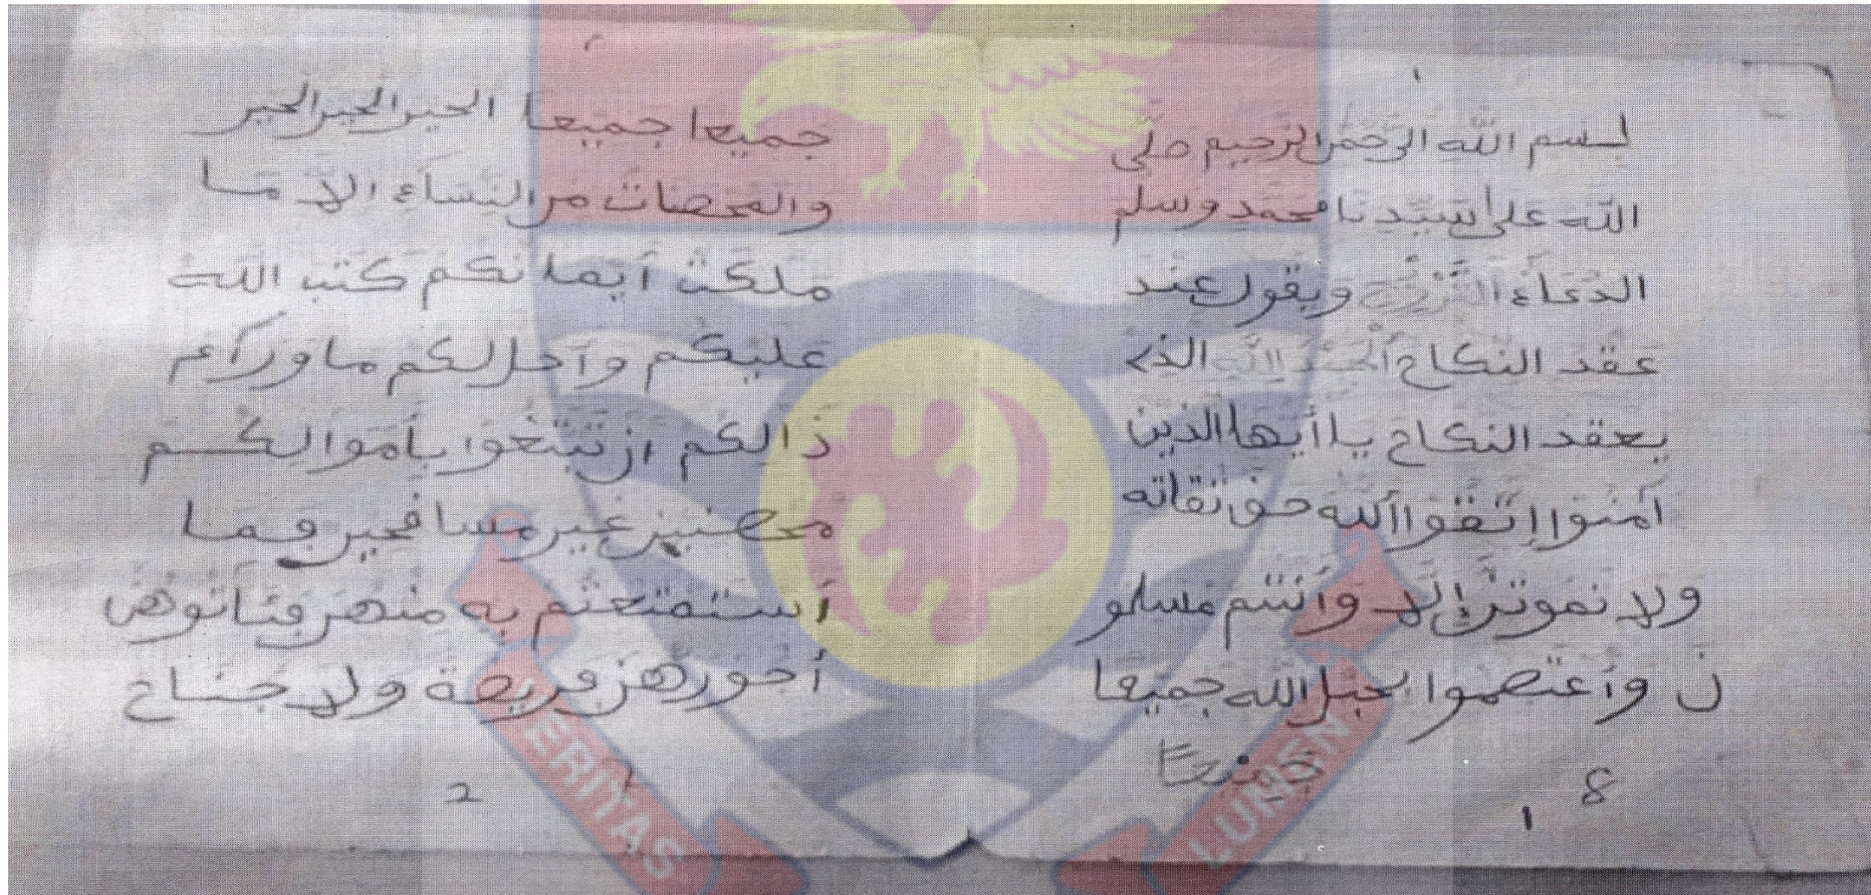 بسم الله الرحمن الرحيم صلى
الله على سيدنا محمد وسلم
الدعاء التزوج ويقول عند
عقد النكاح الحمد لله الذي
يعقد النكاح يا أيها الذين
آمنوا اتقوا الله حق تقاته
ولا تموتن إلا وأنتم مسلمو
ن وأعتصموا بحبل الله جميعا
جميعا
8
1
جميعا جميعا الخير الخير الخير
والمحصنات من النساء الا ما
ملكت أيمانكم كتب الله
عليكم وأحل لكم ما وراء
ذالكم ان تبتغوا بأموالكم
محصنين غير مسافحين فما
أستمتعتم به منهن فئاتوهن
أجورهن فريضة ولا جناح
2
VERITAS
LUMEN